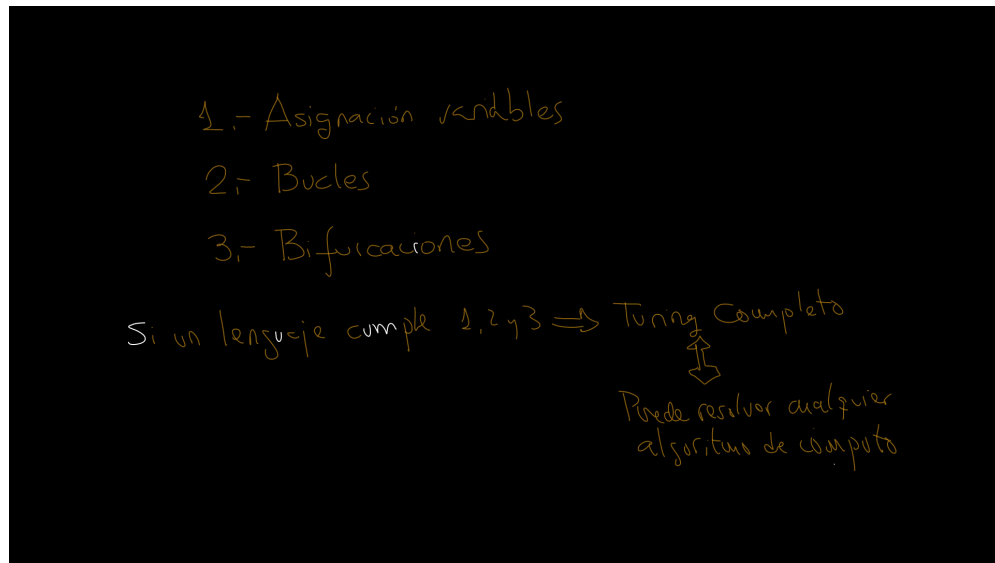 1.- Asignación variables
2.- Bucles
3.- Bifurcaciones
Si un lenguaje cumple 1, 2 y 3 ⇒ Turing Completo
⇕
Puede resolver cualquier
algoritmo de computo